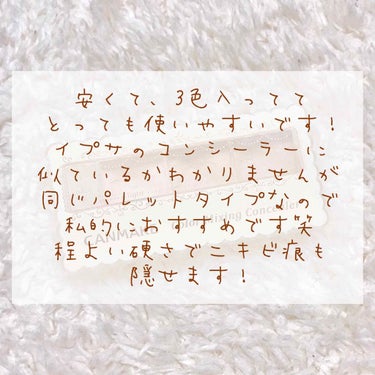 安くて、3色入ってて
とっても使いやすいです!
イプサのコンシーラーに
似ているかわかりませんが
同じパレットタイプなので
私的におすすめです笑
程よい硬さでニキビ痕も
隠せます!
CANMAKE